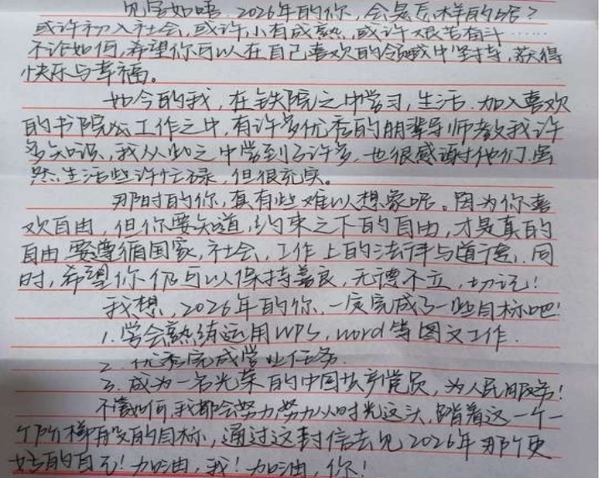 见字如晤。2026年的你,会是怎样的呢?
或许初入社会,或许小有成就,或许艰苦奋斗……
不论如何,希望你可以在自己喜欢的领域中坚持,获得
快乐与幸福。
如今的我,在铁院之中学习,生活.加入喜欢
的书院及工作之中,有许多优秀的朋辈导师教我许
多知识,我从此之中学到了许多,也很感谢他们.虽
然生活些许忙碌,但很充实。
那时的你,真有些难以想象呢。因为你喜
欢自由,但你要知道,约束之下的自由,才是真的
自由.要遵循国家,社会,工作上的法律与道德.同
时,希望你仍可以保持善良,无德不立,切记!
我想,2026年的你,一定完成了一些目标吧!
1.学会熟练运用WPS,word等图文工作.
2.优秀完成学业任务.
3.成为一名光荣的中国共产党员,为人民服务!
不管如何,我都会努力,努力从时光这头,踏着这一个一
个阶梯般的目标,通过这封信去见2026年那个更
好的自己!加油,我!加油,你!